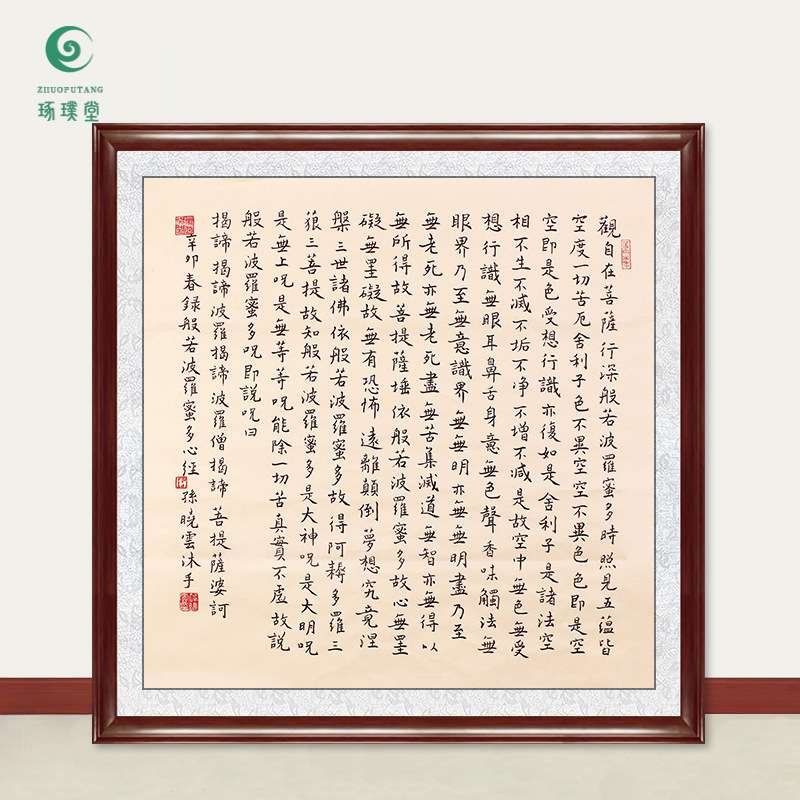 ZHUOPUTANG
琢璞堂
觀自在菩薩行深般若波羅蜜多時照見五蘊皆
空度一切苦厄舍利子色不異空空不異色色即是空
空即是色受想行識亦復如是舍利子是諸法空
相不生不滅不垢不净不增不减是故空中無色無受
想行識無眼耳鼻舌身意無色聲香味觸法無
眼界乃至無意識界無無明亦無無明盡乃至
無老死亦無老死盡無苦集滅道無智亦無得以
無所得故菩提薩埵依般若波羅蜜多故心無罣
礙無罣礙故無有恐怖遠離顛倒夢想究竟涅
槃三世諸佛依般若波羅蜜多故得阿耨多羅三
藐三菩提故知般若波羅蜜多是大神呪是大明呪
是無上呪是無等等呪能除一切苦真實不虛故說
般若波羅蜜多呪即說呪曰
揭諦揭諦波羅揭諦波羅僧揭諦菩提薩婆訶
辛卯春録般若波羅蜜多心經孫曉雲沐手